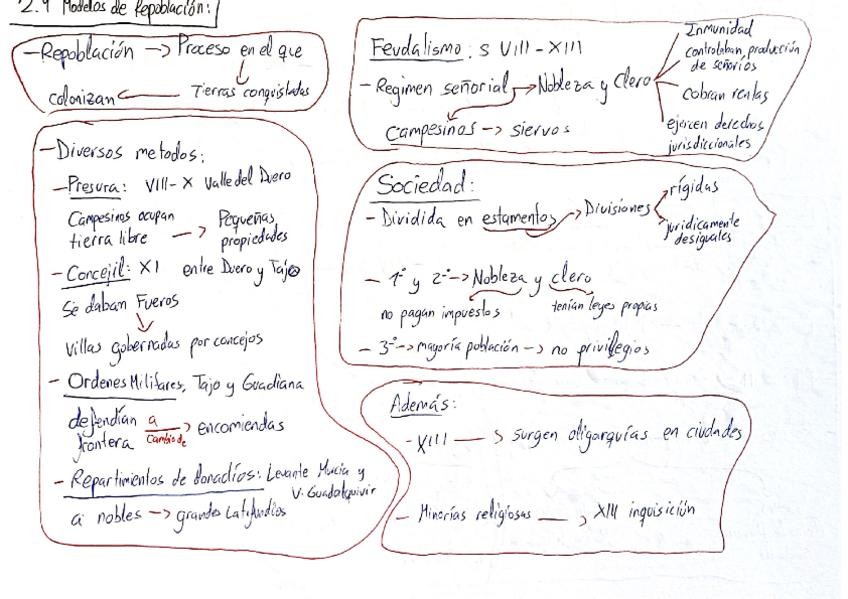 2.4 Modelos de Repoblación:
-Repoblación -> Proceso en el que
colonizan <- Tierras conquistadas
-Diversos metodos:
-Presura: VIII-X Valle del Duero
Campesinos ocupan tierra libre -> Pequeñas propiedades
-Concejil: XI entre Duero y Tajo
Se daban Fueros
Villas gobernadas por concejos
- Ordenes Militares, Tajo y Guadiana
defendían frontera a cambio de -> encomiendas
- Repartimientos de donadíos: Levante Murcia y
V. Guadalquivir
a nobles -> grandes Latifundios
Feudalismo: S VIII-XIII
-Regimen señorial -> Nobleza y Clero
Inmunidad
controlaban producción
de señoríos
cobran rentas
ejercen derechos
jurisdiccionales
campesinos -> siervos
Sociedad:
- Dividida en estamentos -> Divisiones
rígidas
juridicamente
desiguales
- 1º y 2º -> Nobleza y clero
no pagan impuestos tenían leyes propias
- 3º -> mayoría población -> no privilegios
Además:
-XIII -> surgen oligarquías en ciudades
- Minorías religiosas -> XIII inquisición